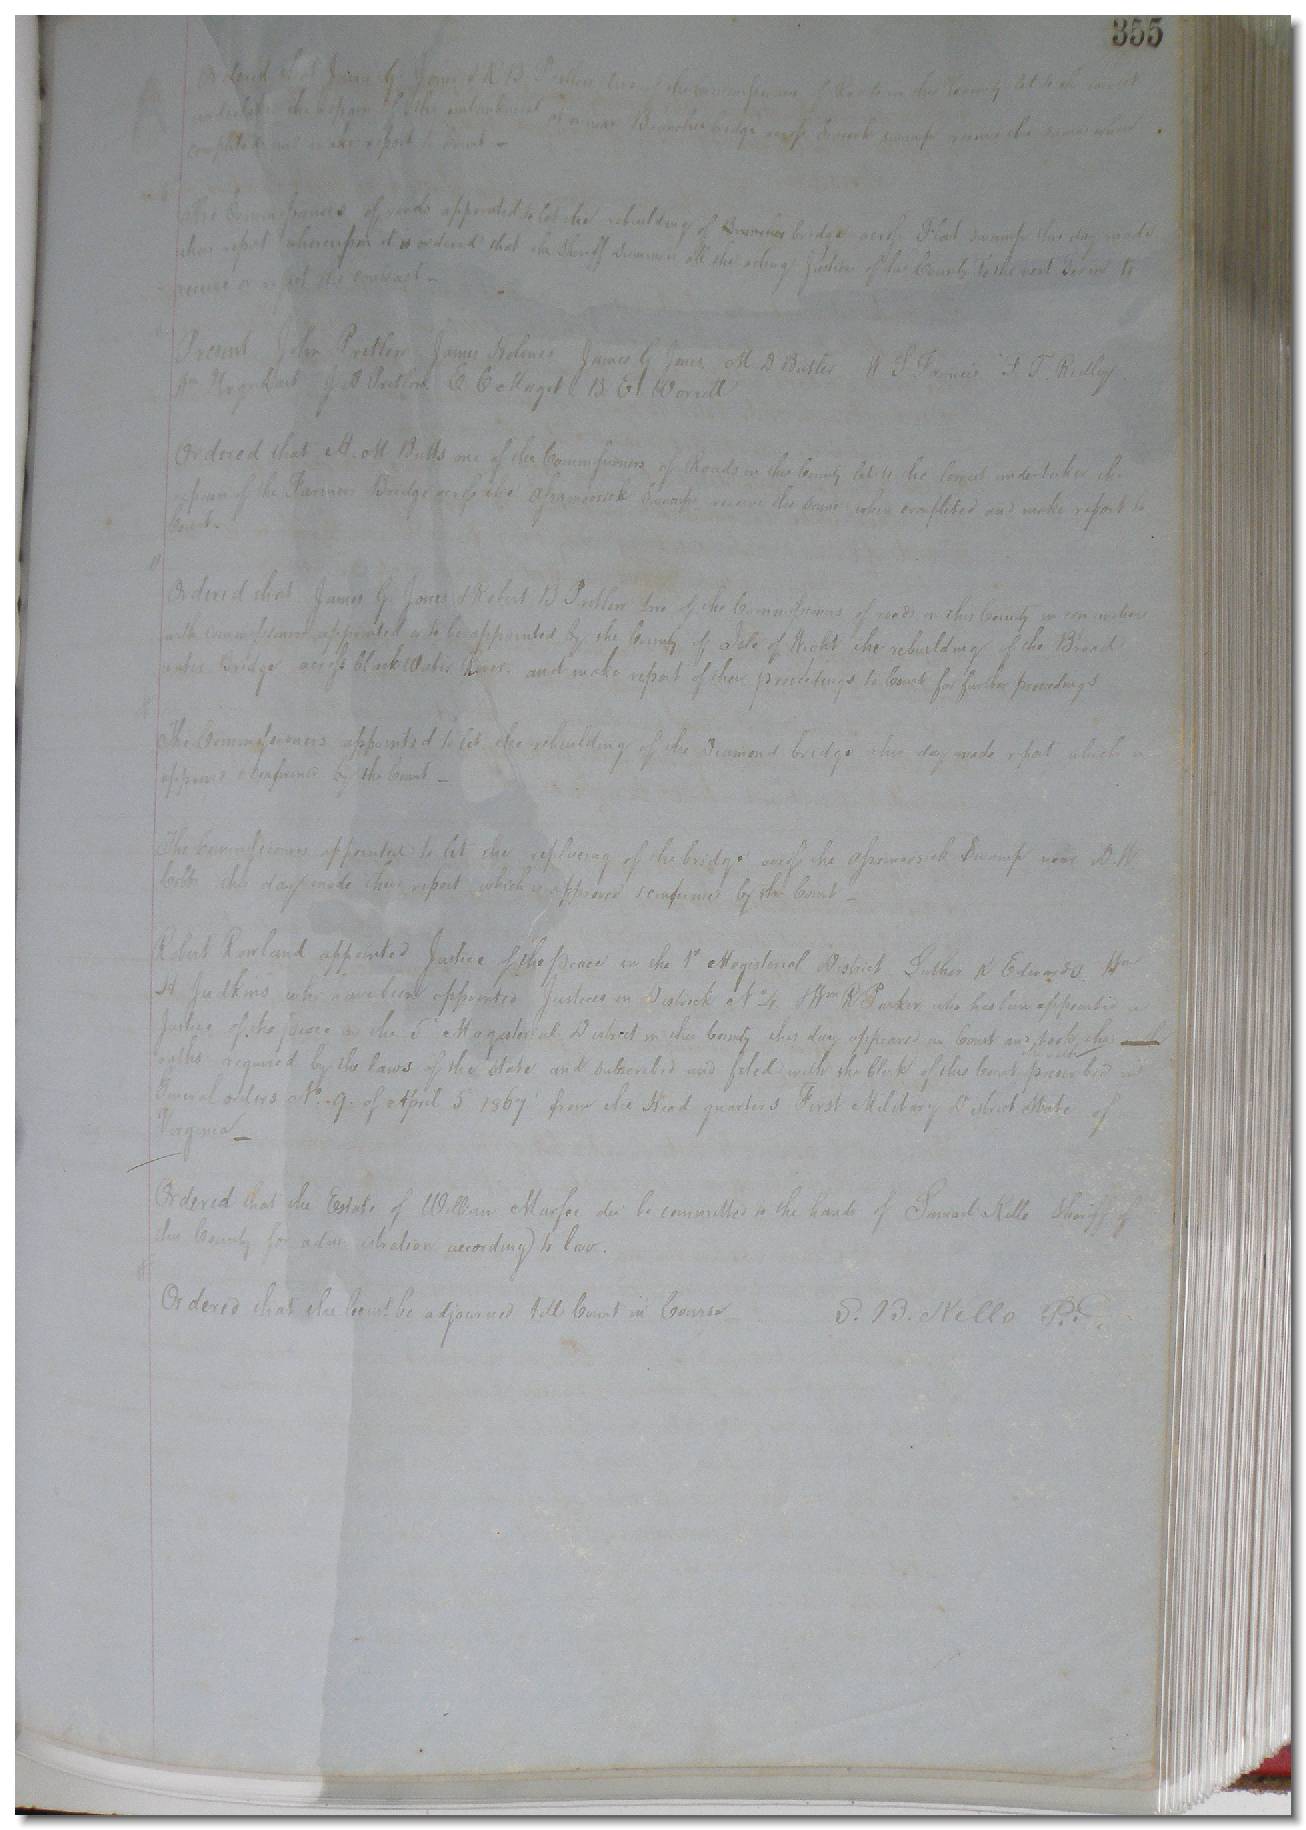 355
Ordered that James G. Jones & R B Pretlow two of the commissioners of Roads in this County let to the lowest
undertaker the repair of the embankment at or near Branches bridge across swamp receive the same when
completed and make report to Court –
The Commissioners of roads appointed to let the rebuilding of bridge across Flat Swamp this day made
their report whereupon it is ordered that the Sheriff summon all the acting Justices of this County to the next Term to
receive or reject the contract –
Present John Pretlow James Holmes James G Jones M D Butler W S Francis T. Ridley
Wm Urquhart J A Pretlow E C Maget B E Worrell
Ordered that A. M Butts one of the Commissioners of Roads in this County let to the lowest undertaker the
repair of the Farmers Bridge across the Swamp receive the same when completed and make report to
Court –
Ordered that James G. Jones & Robert B Pretlow two of the Commissioners of roads in this County in connection
with commissioners appointed or to be appointed by the County of Isle of Wight the rebuilding of the Broad
water Bridge across black Water River and make report of their proceedings to Court for further proceedings
The Commissioners appointed to let the rebuilding of the Diamond bridge this day made report which is
approved & confirmed by the Court –
The Commissioners appointed to let the of the bridge across the Swamp near D. W
Cobb this day made their report which is approved & confirmed by the Court –
Robert Rowland appointed Justice of the peace in the 1st Magisterial District Luther R Edwards Wm
H Judkins who have been appointed Justices in District No 4 & Wm R Parker who has been appointed a
Justice of the peace in the Magisterial District in this County this day appeared in Court and took the
oaths required by the laws of the State and subscribed and filed with the Clerk of this Court prescribed in
General orders No. 9. of April 5 1867 from the Head quarters First Military District State of
Virginia –
Ordered that the Estate of William Murfee dec be committed to the hands of Samuel Kello Sheriff of
this County for administration according to law.
Ordered that the Court be adjourned till Court in Course S. B. Kello P.J.